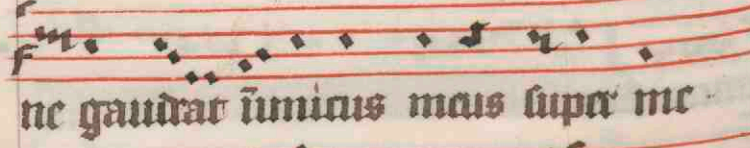 ne gaudeat īimicus meus super me